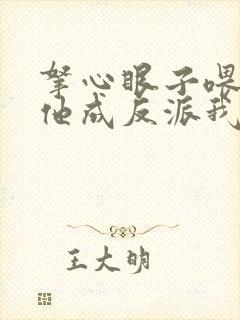 掔心眼子喂
他成反派我
王大明